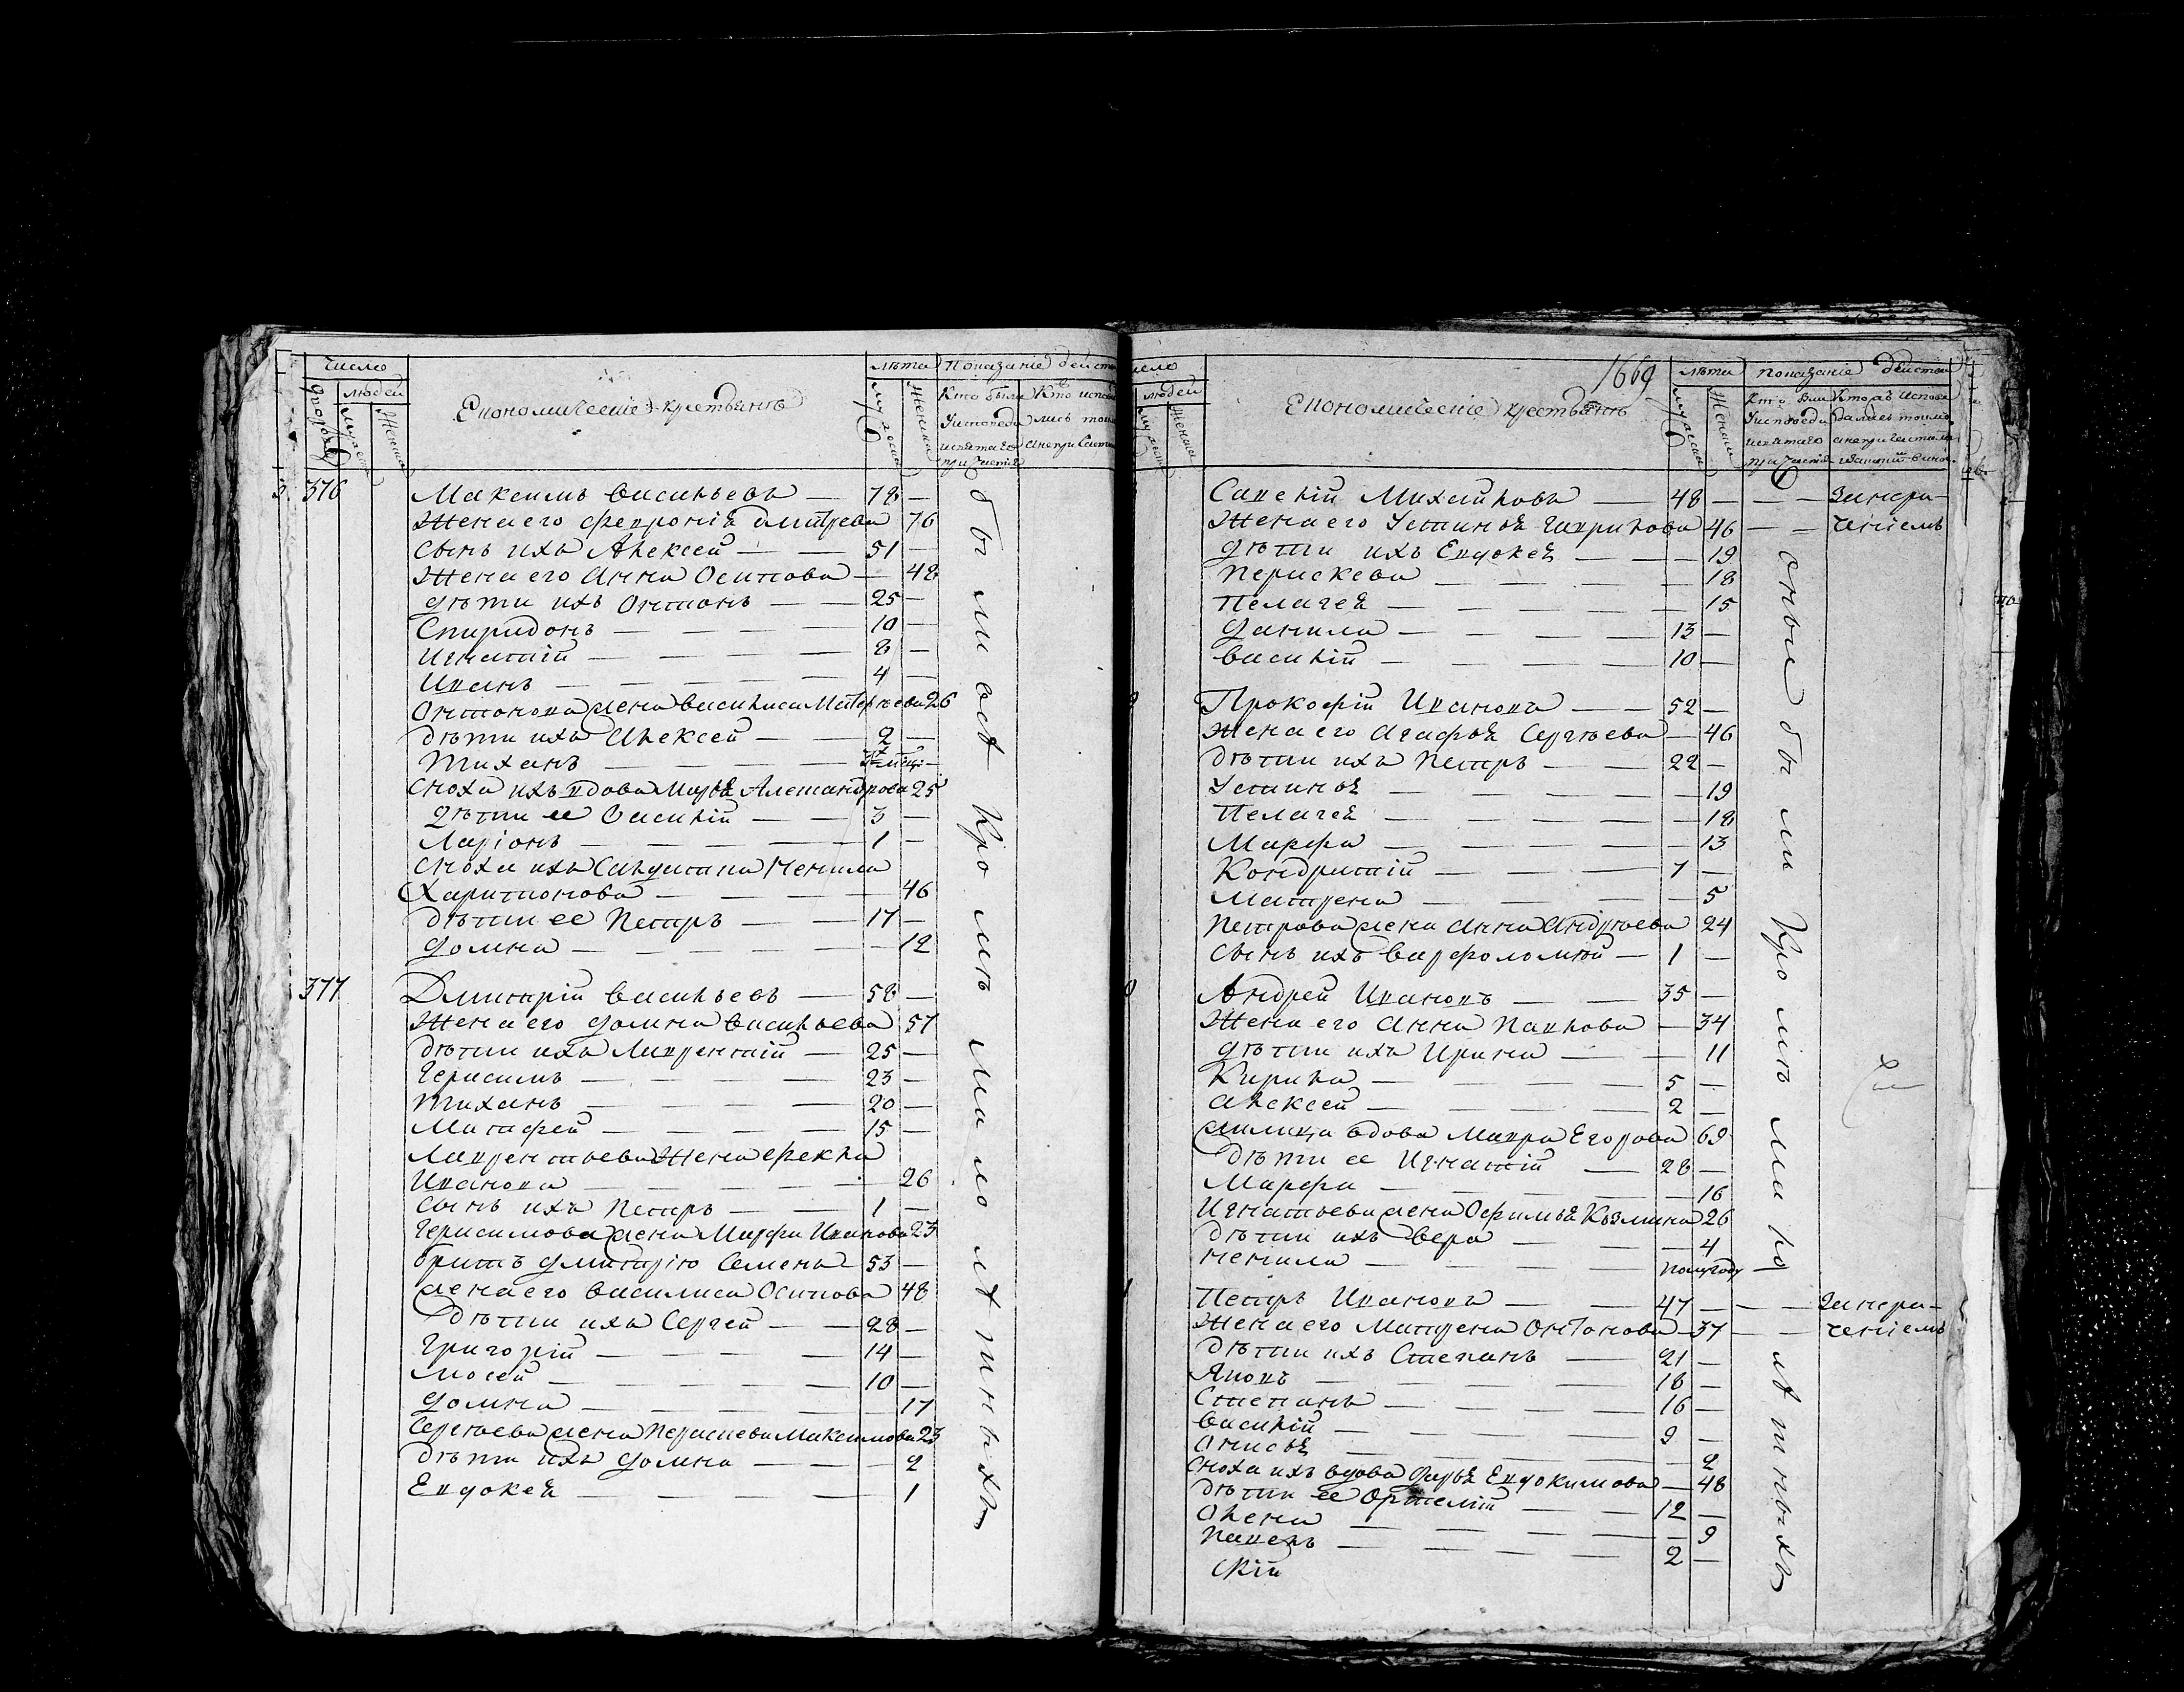 Число
Дворовъ
людей
мужеска
женска
Економические крестьянъ
лѣта
мужеска
женска
Показание действ
Кто были
У исповеди
и святаго
причастия
Кто испове
лись токмо
а не причасти
376
Максимъ васильевъ — 78 —
Жена его Феврония дмитрева 76
Сынъ ихъ Алексеи — 51 —
Жена его анна Осипова — 48
дѣти ихъ Онтонъ — 25 —
Спиридонъ — 10 —
Игнатій — 8 —
Иванъ — 4 —
Онтонова жена василиса Матфѣева 26
дѣти ихъ Алексеи — 2 —
Тиханъ —
Сноха ихъ вдова Марья Алезандрова 25
Дѣти ее Василій — 3 —
Ларіонъ — 1 —
Сноха ихъ Салдатка Ненила
Харитонова — 46
дѣти ее Петръ — 17 —
домна — 12
377
Дмитрій васильевъ — 58 —
Жена его домна васильева 57
дѣти ихъ Лаврентій — 25 —
Герасимъ — 23 —
Тиханъ — 20 —
Матфей — 15 —
Лаврентьева Жена Фекла
Иванова — 26
сынъ ихъ Петръ — 1 —
Герасимова жена Марфа Иванова 23
братъ дмитрію Семенъ 53 —
жена его василиса Осипова 48
Дѣти ихъ Сергей — 28 —
Григорій — 14 —
Мосей — 10 —
домна — 17
Сергѣева жена Пераскева Максимова 23
дѣти ихъ домна — 2
Евдокея — 1
были всѣ Кромѣ малолѣтныхъ
исло
людей
мужеска
женска
Економические крестьянъ
1669
лѣта
мужеска
женска
показание действ
Кто были
У исповеди
и святаго
причастия
Савелій Михаиловъ — 48 — — — Занера-
Жена его Устинья Гаврилова 46 — — чениемъ
дѣти ихъ Евдокея — 19
Пераскева — 18
Пелагея — 15
данила — 13 —
василій — 10 —
Прокофій Ивановъ — 52 —
жена его Агафья Сергѣева — 46
дѣти ихъ Петръ — 22 —
Устинья — 19
Пелагея — 18
Марфа — 13
Кондратій — 7 —
Матрена — 5
Петрова жена анна Андрѣева 24
сынъ ихъ варфоломѣй — 1 —
Андрей Ивановъ — 35 —
Жена его анна Павлова — 34
дѣти ихъ Ирина — 11
Кирила — 5 —
алексеи — 2 —
вдова Мавра Егорова 69
дѣти ее Игнатій — 28 —
Марфа — 16
Игнатьева жена Офимья Козмина 26
дѣти ихъ вера — 4
Ненила — полугоду
Петръ Ивановъ — 47 — — — Занера-
Жена его Матрена Онтонова — 37 — — чениемъ
дѣти ихъ Степанъ — 21 —
Яковъ — 18 —
Степанъ — 16 —
василій — 9 —
Онисья — 2
Сноха ихъ вдова дарья Евдокимова — 48
дѣти ее Ортемій — 12 —
Олена — 9
Павелъ — 2 —
скій
оныя были Кромѣ малолѣтныхъ